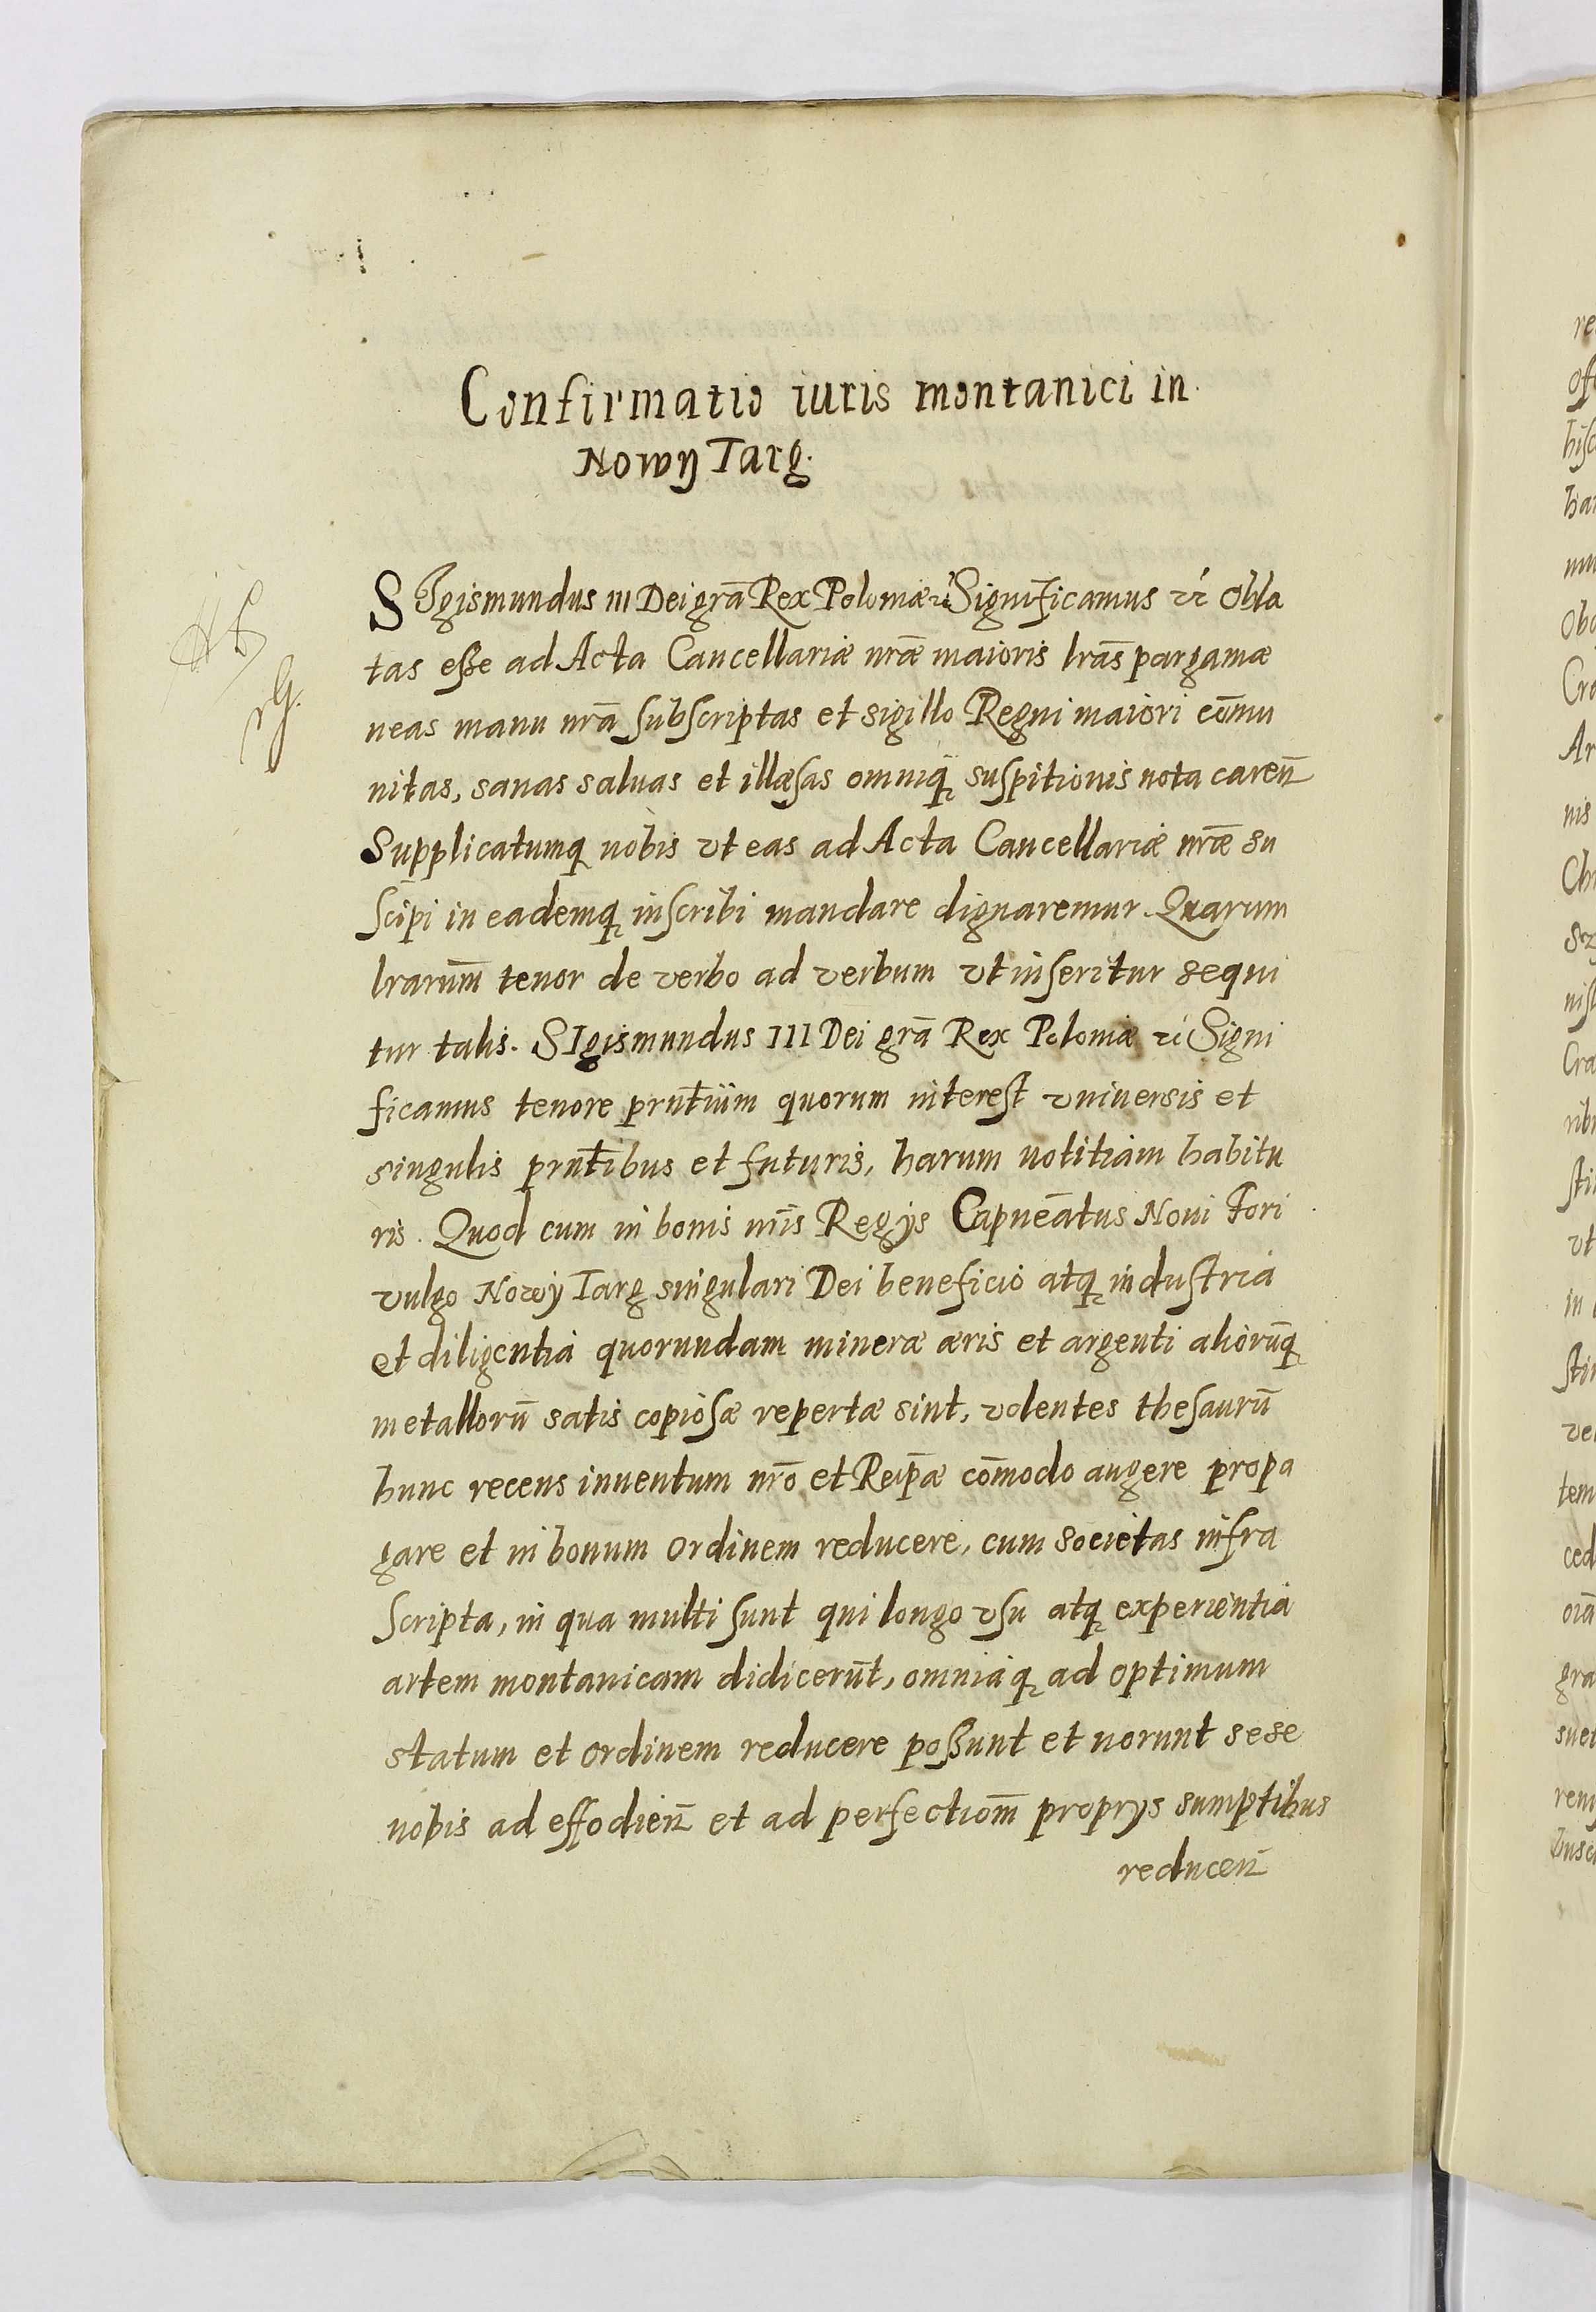 Confirmatio iuris montanici in
Nowy Targ.
SIgismundus III Dei grā Rex Poloniæ ꝛc̃ Significamus ꝛc̃ Obla
tas eße ad Acta Cancellariæ nr̄æ maioris lrās pargamæ
neas manu nrā subscriptas et sigillo Regni maiori com̄u
nitas, sanas saluas et illæsas omniq̨ suspitionis nota caren̄
Supplicatumq̨ nobis vt eas ad Acta Cancellariæ nr̄æ su
scipi in eademq̨ inscribi mandare dignaremur. Quarum
lrarum̄ tenor de verbo ad verbum vt inseritur sequi
tur talis. SIgismundus III Dei grā Rex Poloniæ ꝛc̃ Signi
ficamus tenore prnt̄ium quorum interest vniuersis et
singulis prnt̄ibus et futuris, harum notitiam habitu
ris. Quod cum in bonis nrīs Regijs Capneātus Noui Fori
vulgo Nowy Targ singulari Dei beneficio atq̨ industria
et diligentia quorundam mineræ æris et argenti aliorūq̨
metallorū satis copiosæ repertæ sint, volentes thesaurū
hunc recens inuentum nrō et Reip̄æ com̄odo augere propa
gare et in bonum ordinem reducere, cum societas infra
scripta, in qua multi sunt qui longo vsu atq̨ experientia
artem montanicam didicerūt, omniaq̨ ad optimum
statum et ordinem reducere poßunt et norunt sese
nobis ad effodien̄ et ad perfectiom̄ proprijs sumptibus
reducen̄